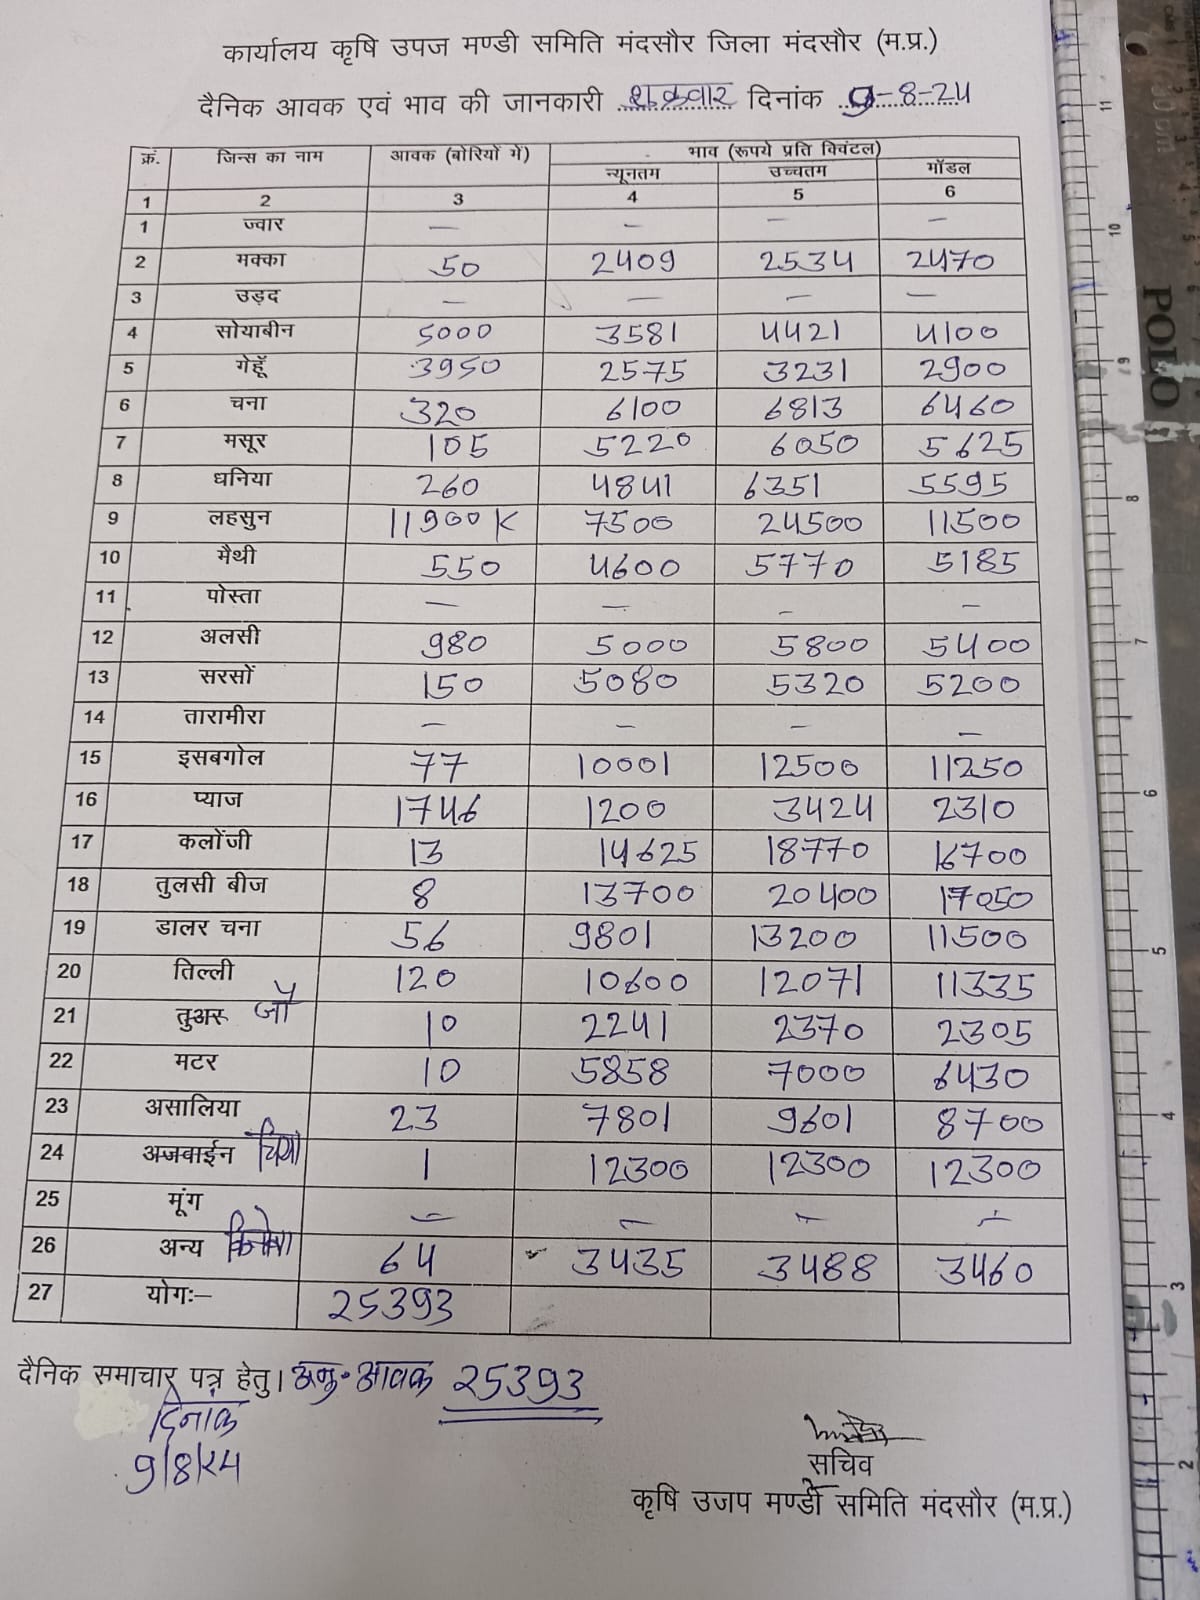 कार्यालय कृषि उपज मण्डी समिति मंदसौर जिला मंदसौर (म.प्र.)
दैनिक आवक एवं भाव की जानकारी शुक्रवार दिनांक 9-8-24
क्रं. जिन्स का नाम आवक (बोरियों में) भाव (रूपये प्रति क्विंटल)
न्यूनतम उच्चतम मॉडल
1 2 3 4 5 6
1 ज्वार — — — —
2 मक्का 50 2409 2534 2470
3 उड़द — — — —
4 सोयाबीन 5000 3581 4421 4100
5 गेहूँ 3950 2575 3231 2900
6 चना 320 6100 6813 6460
7 मसूर 105 5220 6050 5625
8 धनिया 260 4841 6351 5595
9 लहसुन 11900 K 7500 24500 11500
10 मैथी 550 4600 5770 5185
11 पोस्ता — — — —
12 अलसी 980 5000 5800 5400
13 सरसों 150 5080 5320 5200
14 तारामीरा — — — —
15 इसबगोल 77 10001 12500 11250
16 प्याज 1746 1200 3424 2310
17 कलोंजी 13 14625 18770 16700
18 तुलसी बीज 8 13700 20400 17050
19 डालर चना 56 9801 13200 11500
20 तिल्ली 120 10600 12071 11335
21 तुअर जौ 10 2241 2370 2305
22 मटर 10 5858 7000 6430
23 असालिया 23 7801 9601 8700
24 अजवाईन चिया 1 12300 12300 12300
25 मूंग — — — —
26 अन्य 64 3435 3488 3460
27 योगः— 25393
दैनिक समाचार पत्र हेतु। अनु॰ आवक 25393
दिनांक
9/8/24
सचिव
कृषि उजप मण्डी समिति मंदसौर (म.प्र.)
POLO
30 cm
11
10
9
8
7
6
5
4
3
2